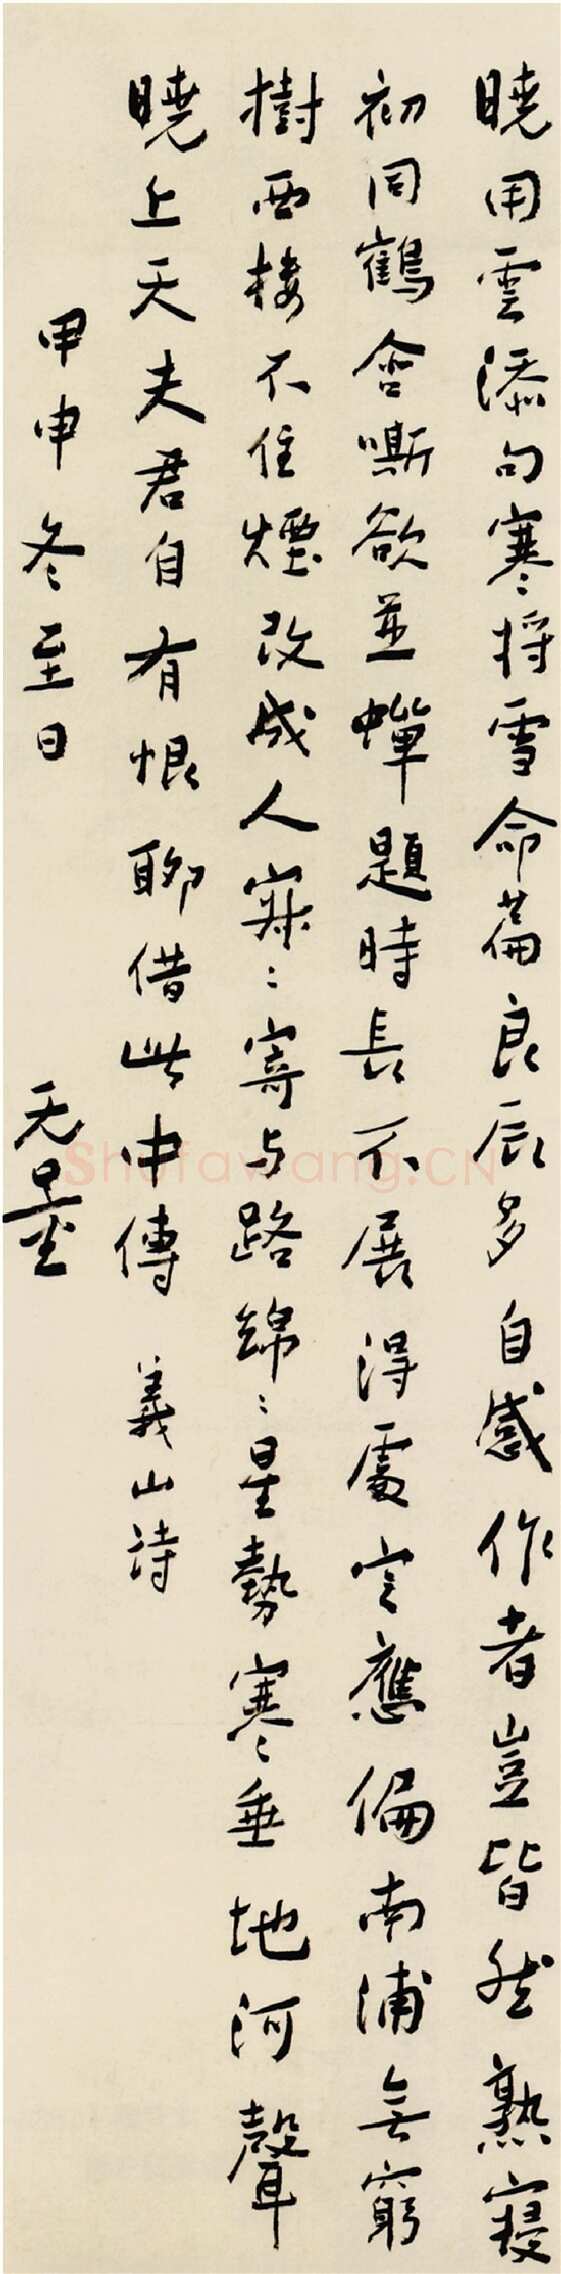 曉用雲添句寒將雪命篇良辰多自感作者豈皆然熟寢
初同鶴含嘶欲並蟬題時長不展得處定應偏南浦無窮
樹西樓不住煙改成人寂〻寄与路綿〻星勢寒垂地河聲
曉上天夫君自有恨聊借此中傳 義山詩
甲申冬至日 无量
Shufawang.CN